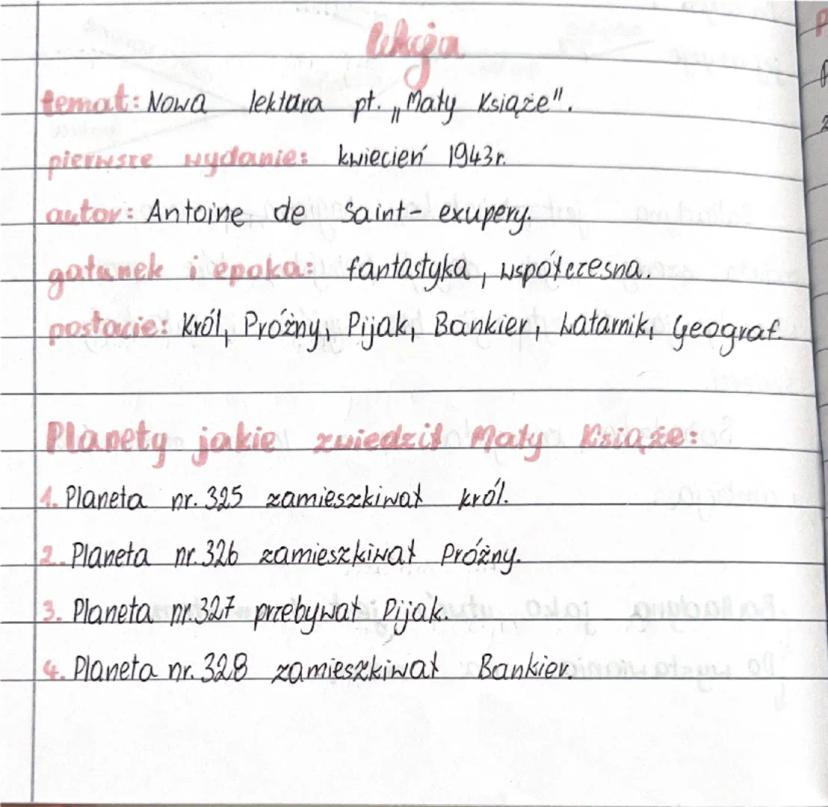 lekcja
temat: Nowa lektura pt. „Mały Książe".
pierwsze wydanie: kwiecień 1943r.
autor: Antoine de Saint-exupery.
gatunek i epoka: fantastyka, współczesna.
postacie: Król, Próżny, Pijak, Bankier, Latarnik, Geograf.
Planety jakie zwiedził Mały Książe:
1. Planeta nr. 325 zamieszkiwał król.
2. Planeta nr. 326 zamieszkiwał Próżny.
3. Planeta nr. 327 przebywał Pijak.
4. Planeta nr. 328 zamieszkiwał Bankier.